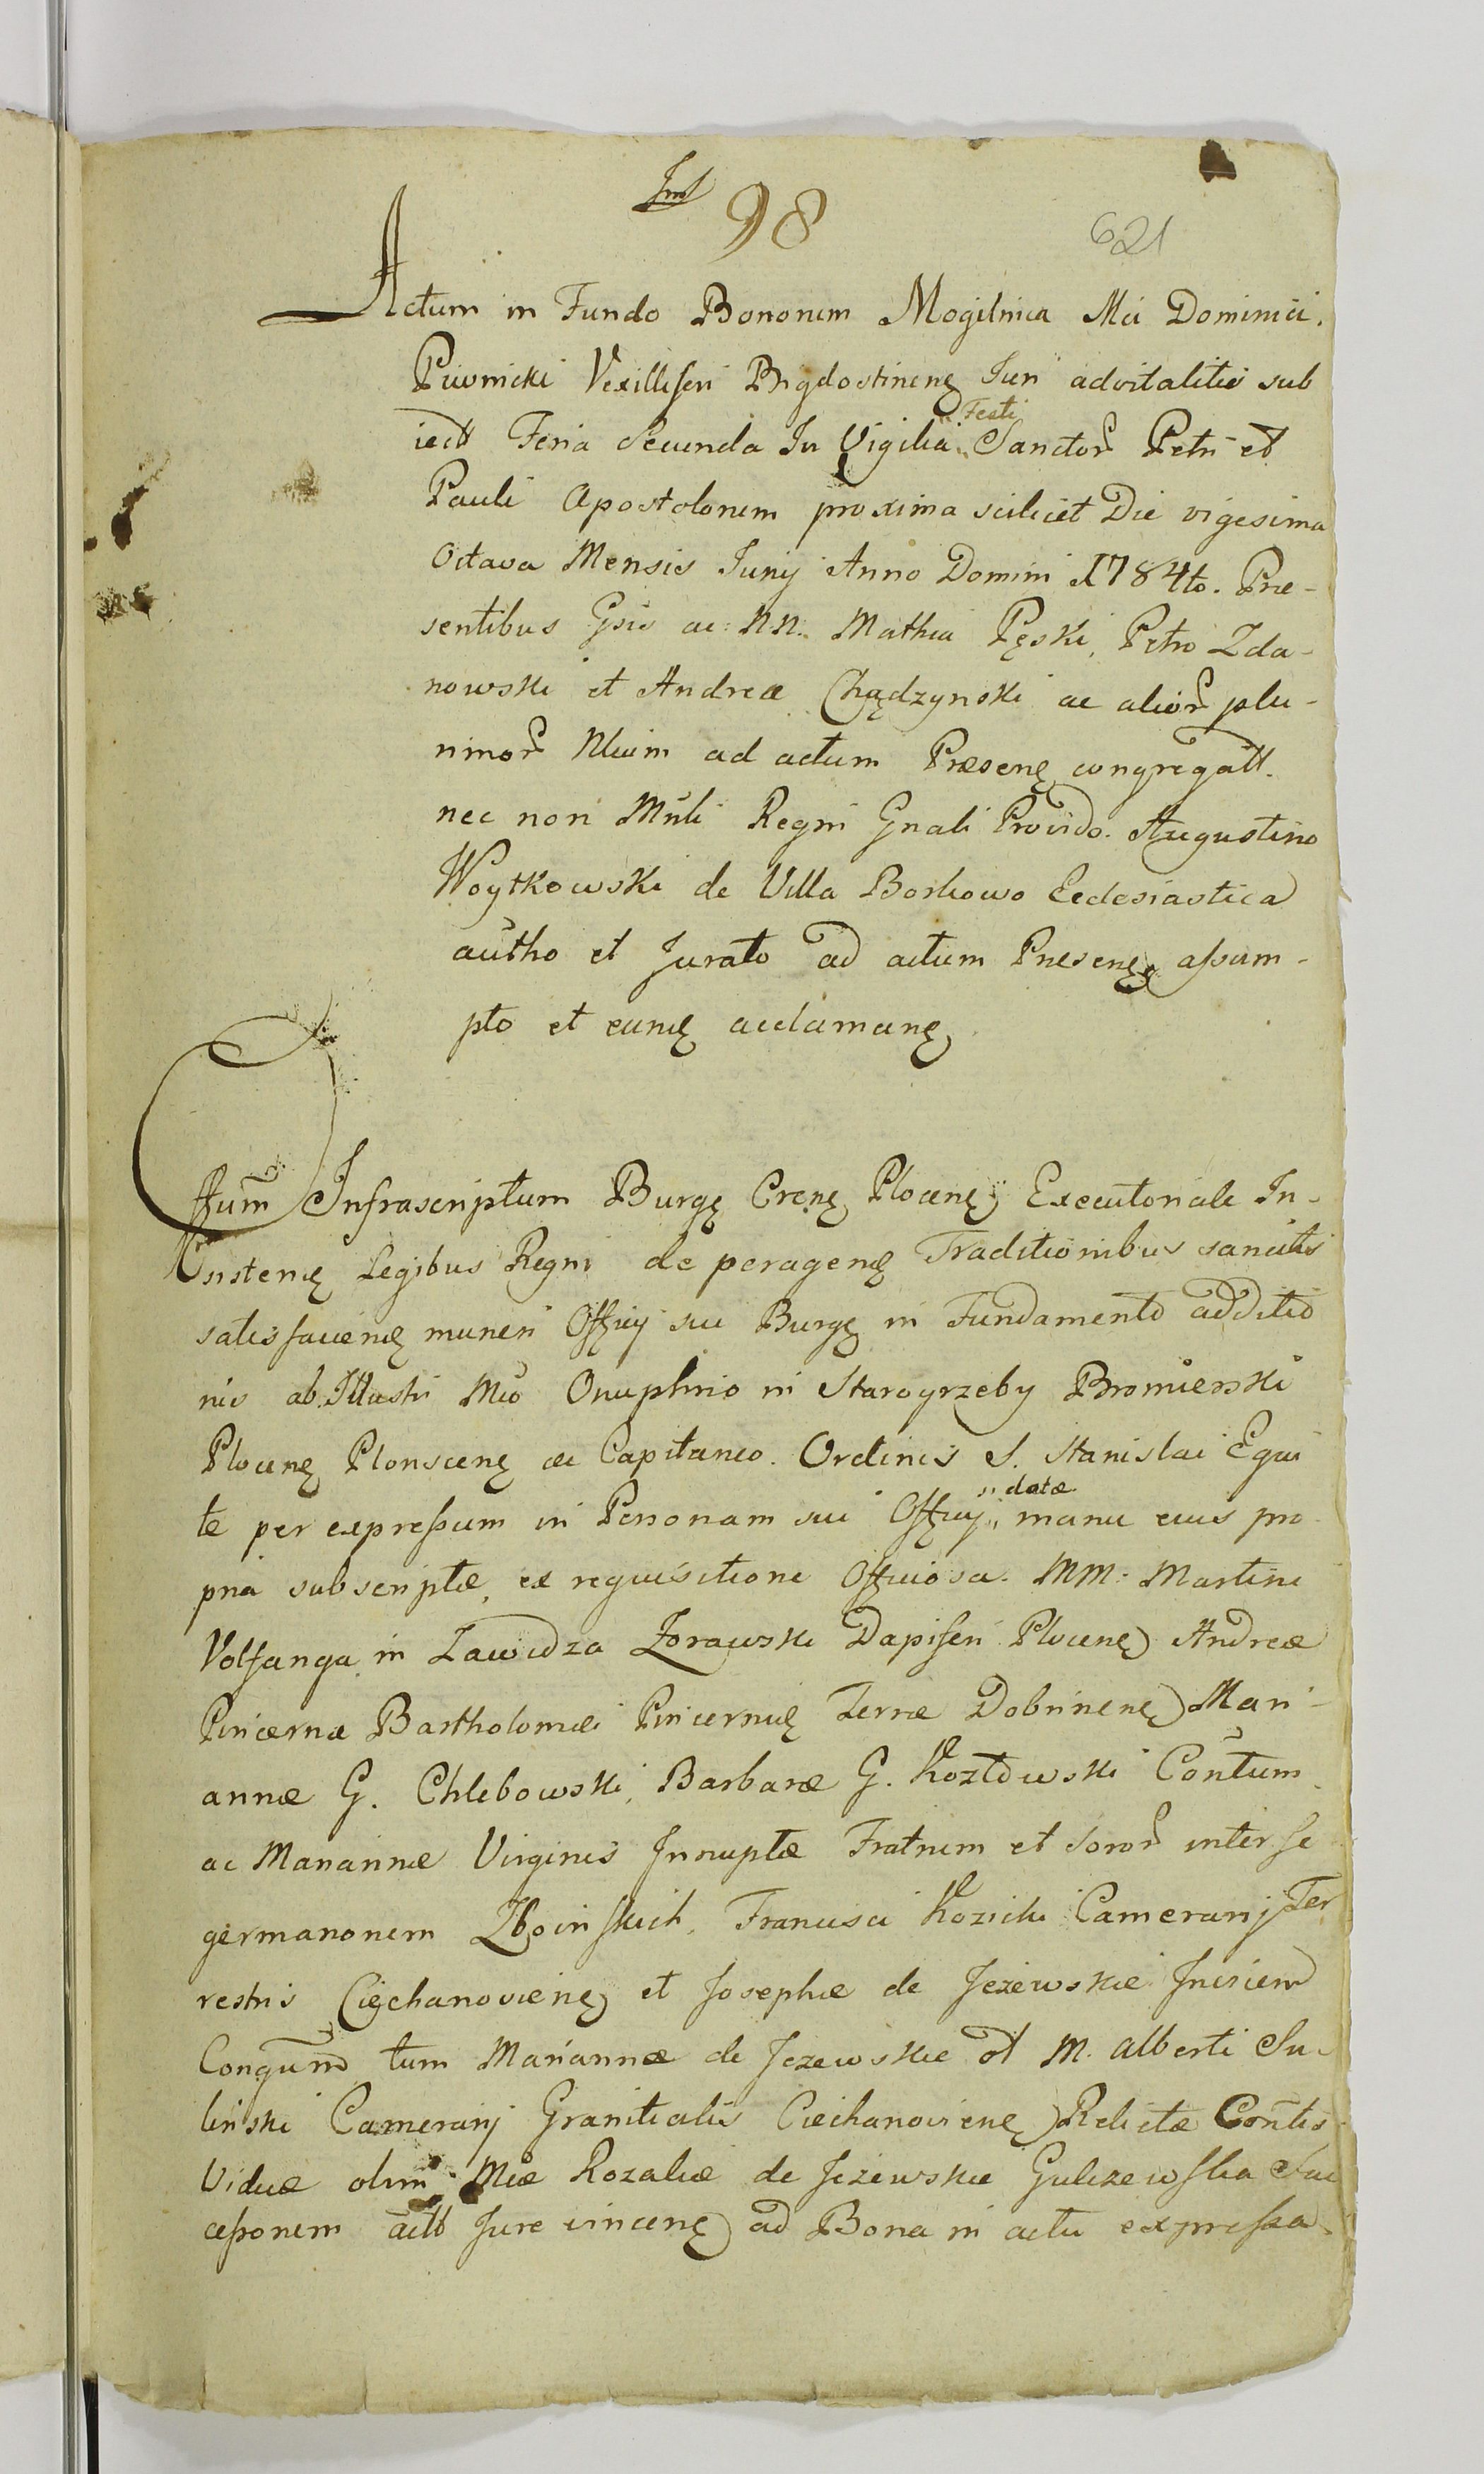 98
621
Actum in Fundo Bonorum Mogilnica Mci Dominici
Piwnicki Vexilliferi Bŋdostinenę Juri advitalitio sub
iectt Feria Secunda In Vigilia Festi Sanctor Petri et
Pauli Apostolorum proxima scilicet Die vigesima
Octava Mensis Junij Anno Domini 1784to. Præ-
sentibus Gsis ac NN. Mathia Pęski, Petro Zda-
nowski et Andrea Chądzynski ac alior plu-
rimor Nlium ad actum Præsenę congregatt.
nec non Mnli Regni Gnali Provido. Augustino
Woytkowski de Villa Borkowo Ecclesiastica
autho et Jurato ad actum Presenę assum-
pto et eumę acclamanę
Offum Infrascriptum Burgę Crenę Plocenę Executoriale In-
sistenę Legibus Regni de peragenę Traditionibus sancitis
satisfacienę muneri Officij sui Burgę in Fundamento additio
nis ab Illustri Mco Onuphrio in Starogrzeby Bromierski
Plocenę Plonscenę ac Capitaneo. Ordinis S. Stanislai Equi
te per expressum in Personam sui Officij datæ manu eius pro
pria subscriptæ, ex requisitione Officiosa. MM: Martini
Volfanga in Zawidza Żorawski Dapiferi Plocenę Andreæ
Pincernæ Bartholomæi Pincernię Terræ Dobrinenę Mari-
annæ G. Chlebowski, Barbaræ G. Kozłowski Contum
ac Mariannæ Virginis Innuptæ Fratrum et Soror inter se
germanorum Zboinskich, Francisci Kozicki Camerarij Ter
restris Ciechanovienę et Josephæ de Jeżewskie
Conqum tum Mariannæ de Jezewskie M. Alberti Su-
linski Camerarij Granitialis Ciechanovienę Relictæ Contis
Viduæ olim Mcæ Rozaliæ de Jeżewskie Gulczewska Suc
cessorum actt Jure vincenę ad Bona in actu expressa